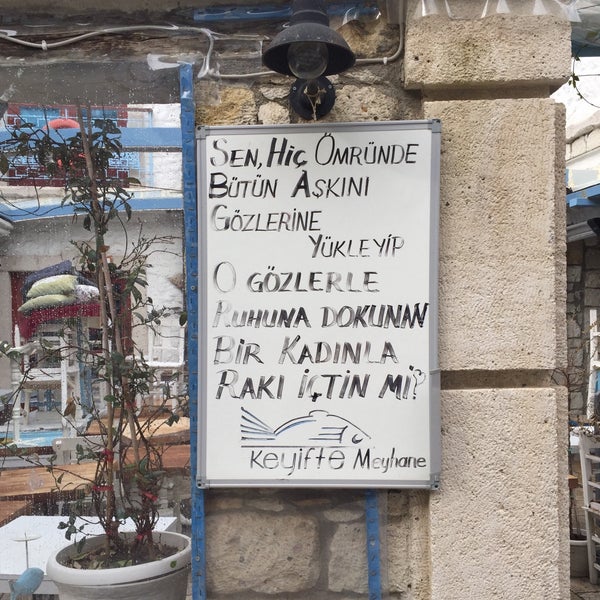 SEN, HİÇ ÖMRÜNDE
BÜTÜN AŞKINI
GÖZLERİNE
YÜKLEYİP
O GÖZLERLE
RUHUNA DOKUNAN
BİR KADINLA
RAKI İÇTİN Mİ?
Keyifte Meyhane